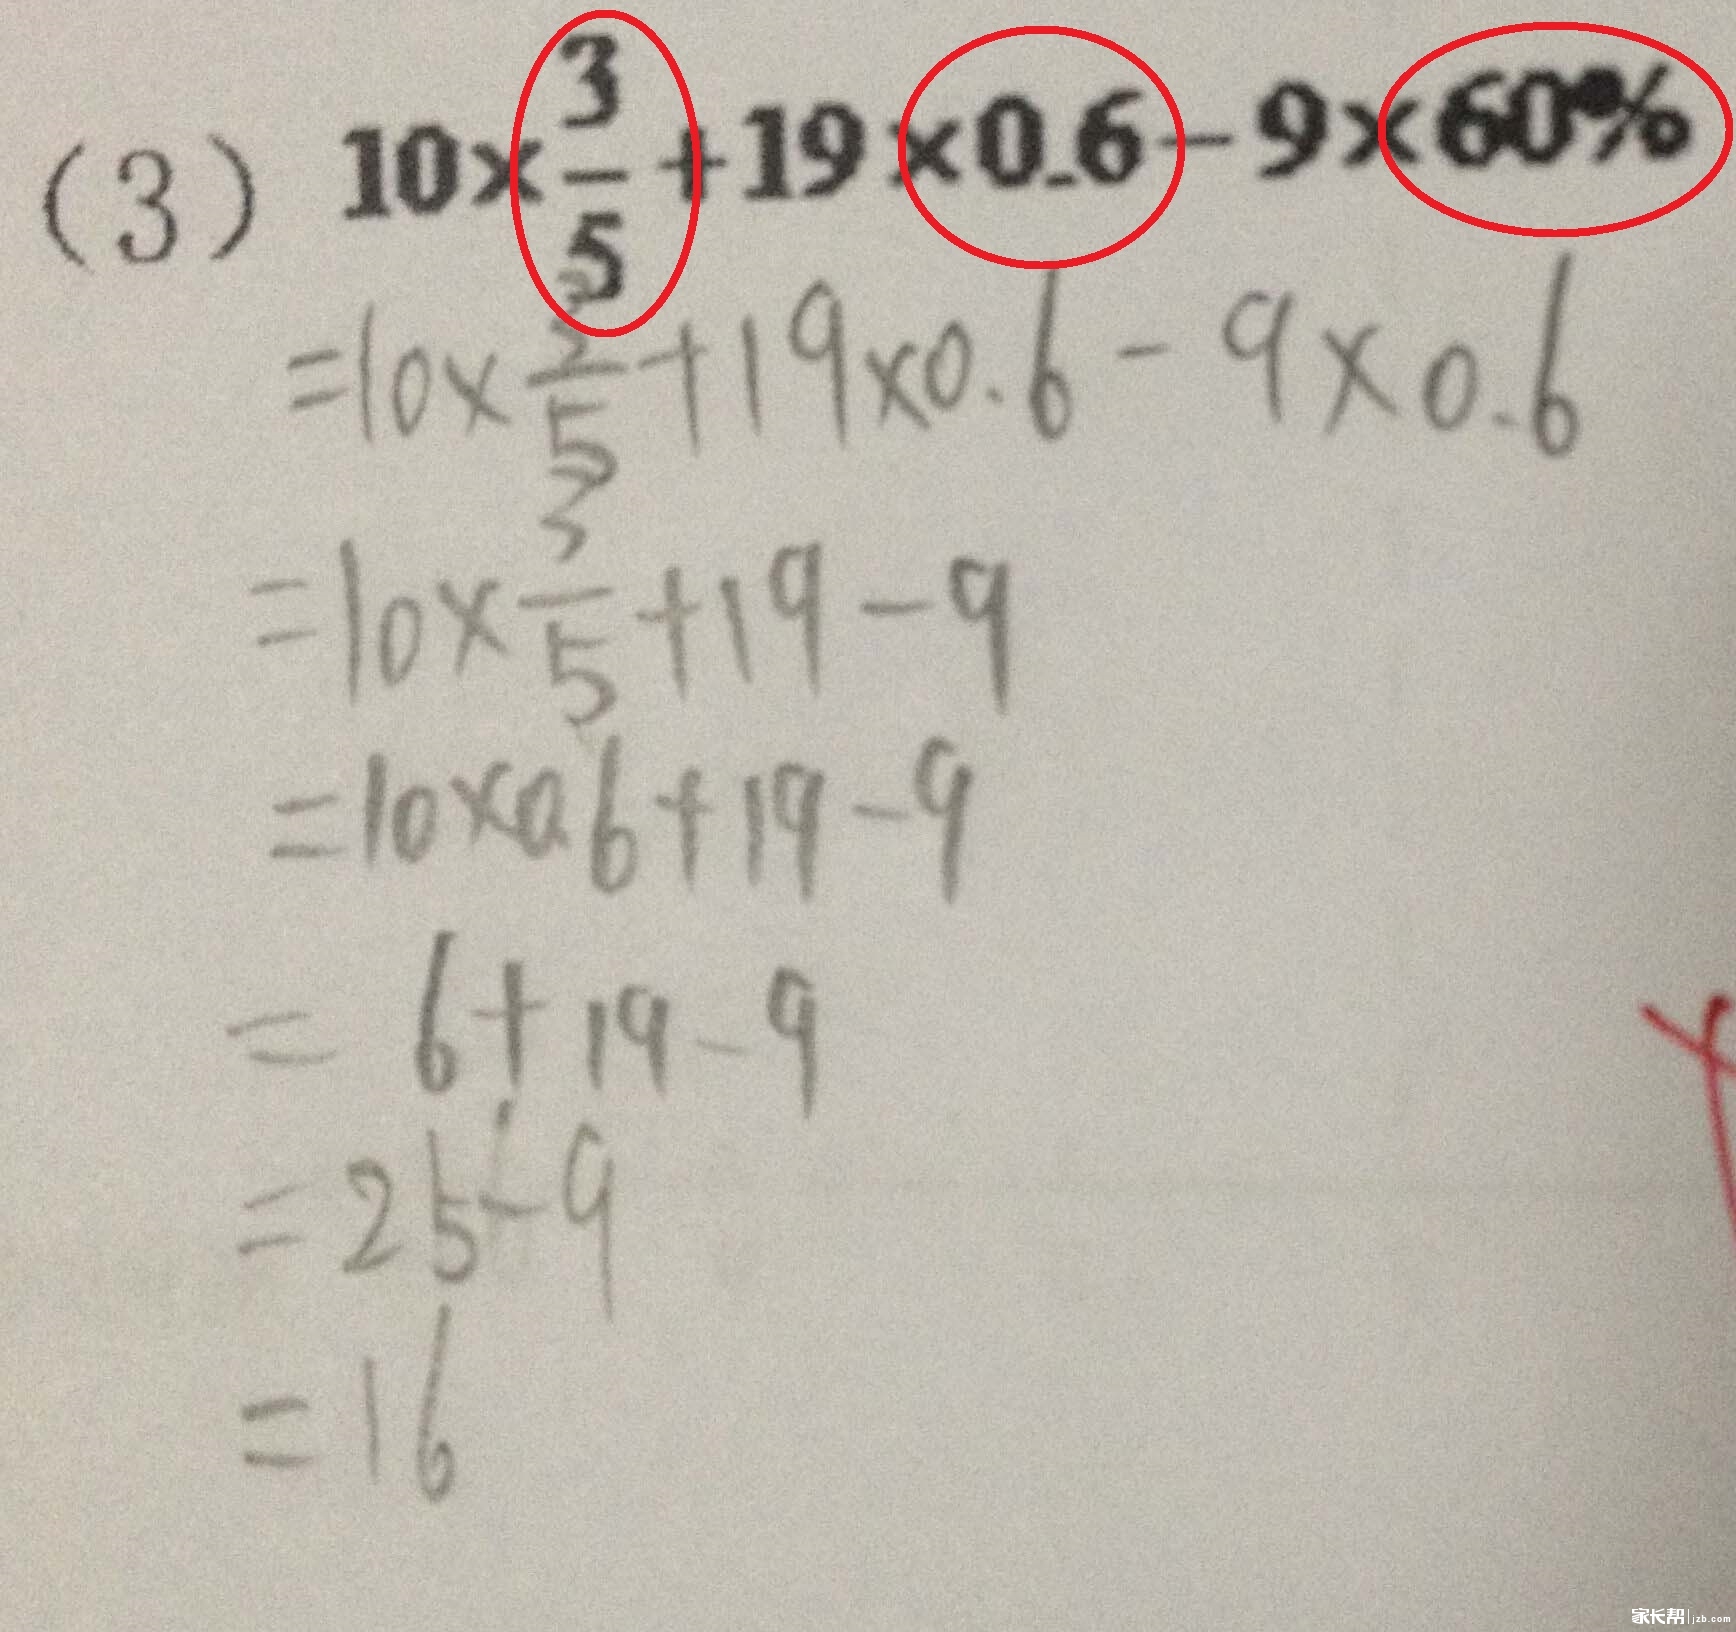 (3) 10×3/5+19×0.6-9×60%
=10×3/5+19×0.6-9×0.6
=10×3/5+19-9
=10×0.6+19-9
=6+19-9
=25-9
=16
家长帮 jzb.com